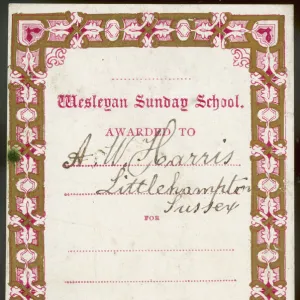 Wesleyan Sunday School.
AWARDED TO
A. W. Harris
Littlehampton
Sussex
FOR